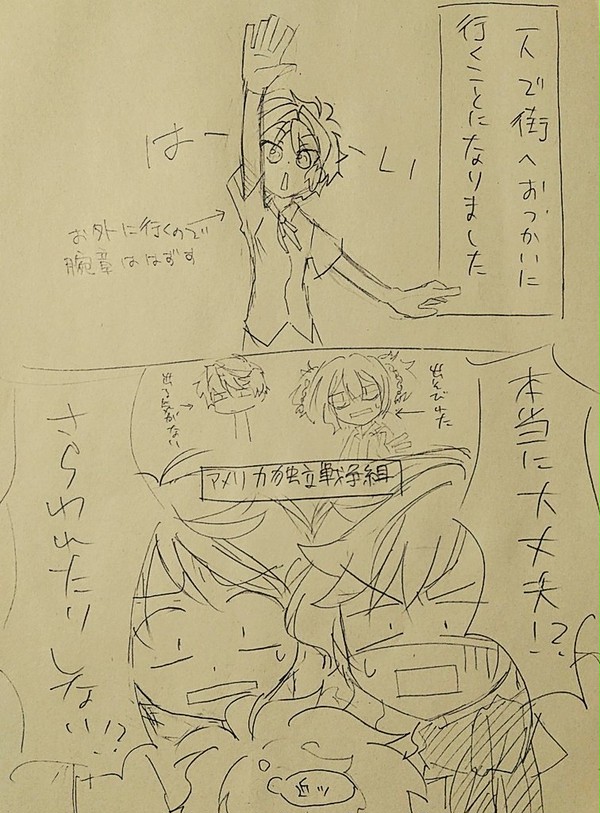 一人で街へおつかいに
行くことになりました
はーい
お外に行くので
腕章ははずす
本当に大丈夫!?
さらわれたりしない!?
出る気がない
アメリカ独立戦争組
近ッ